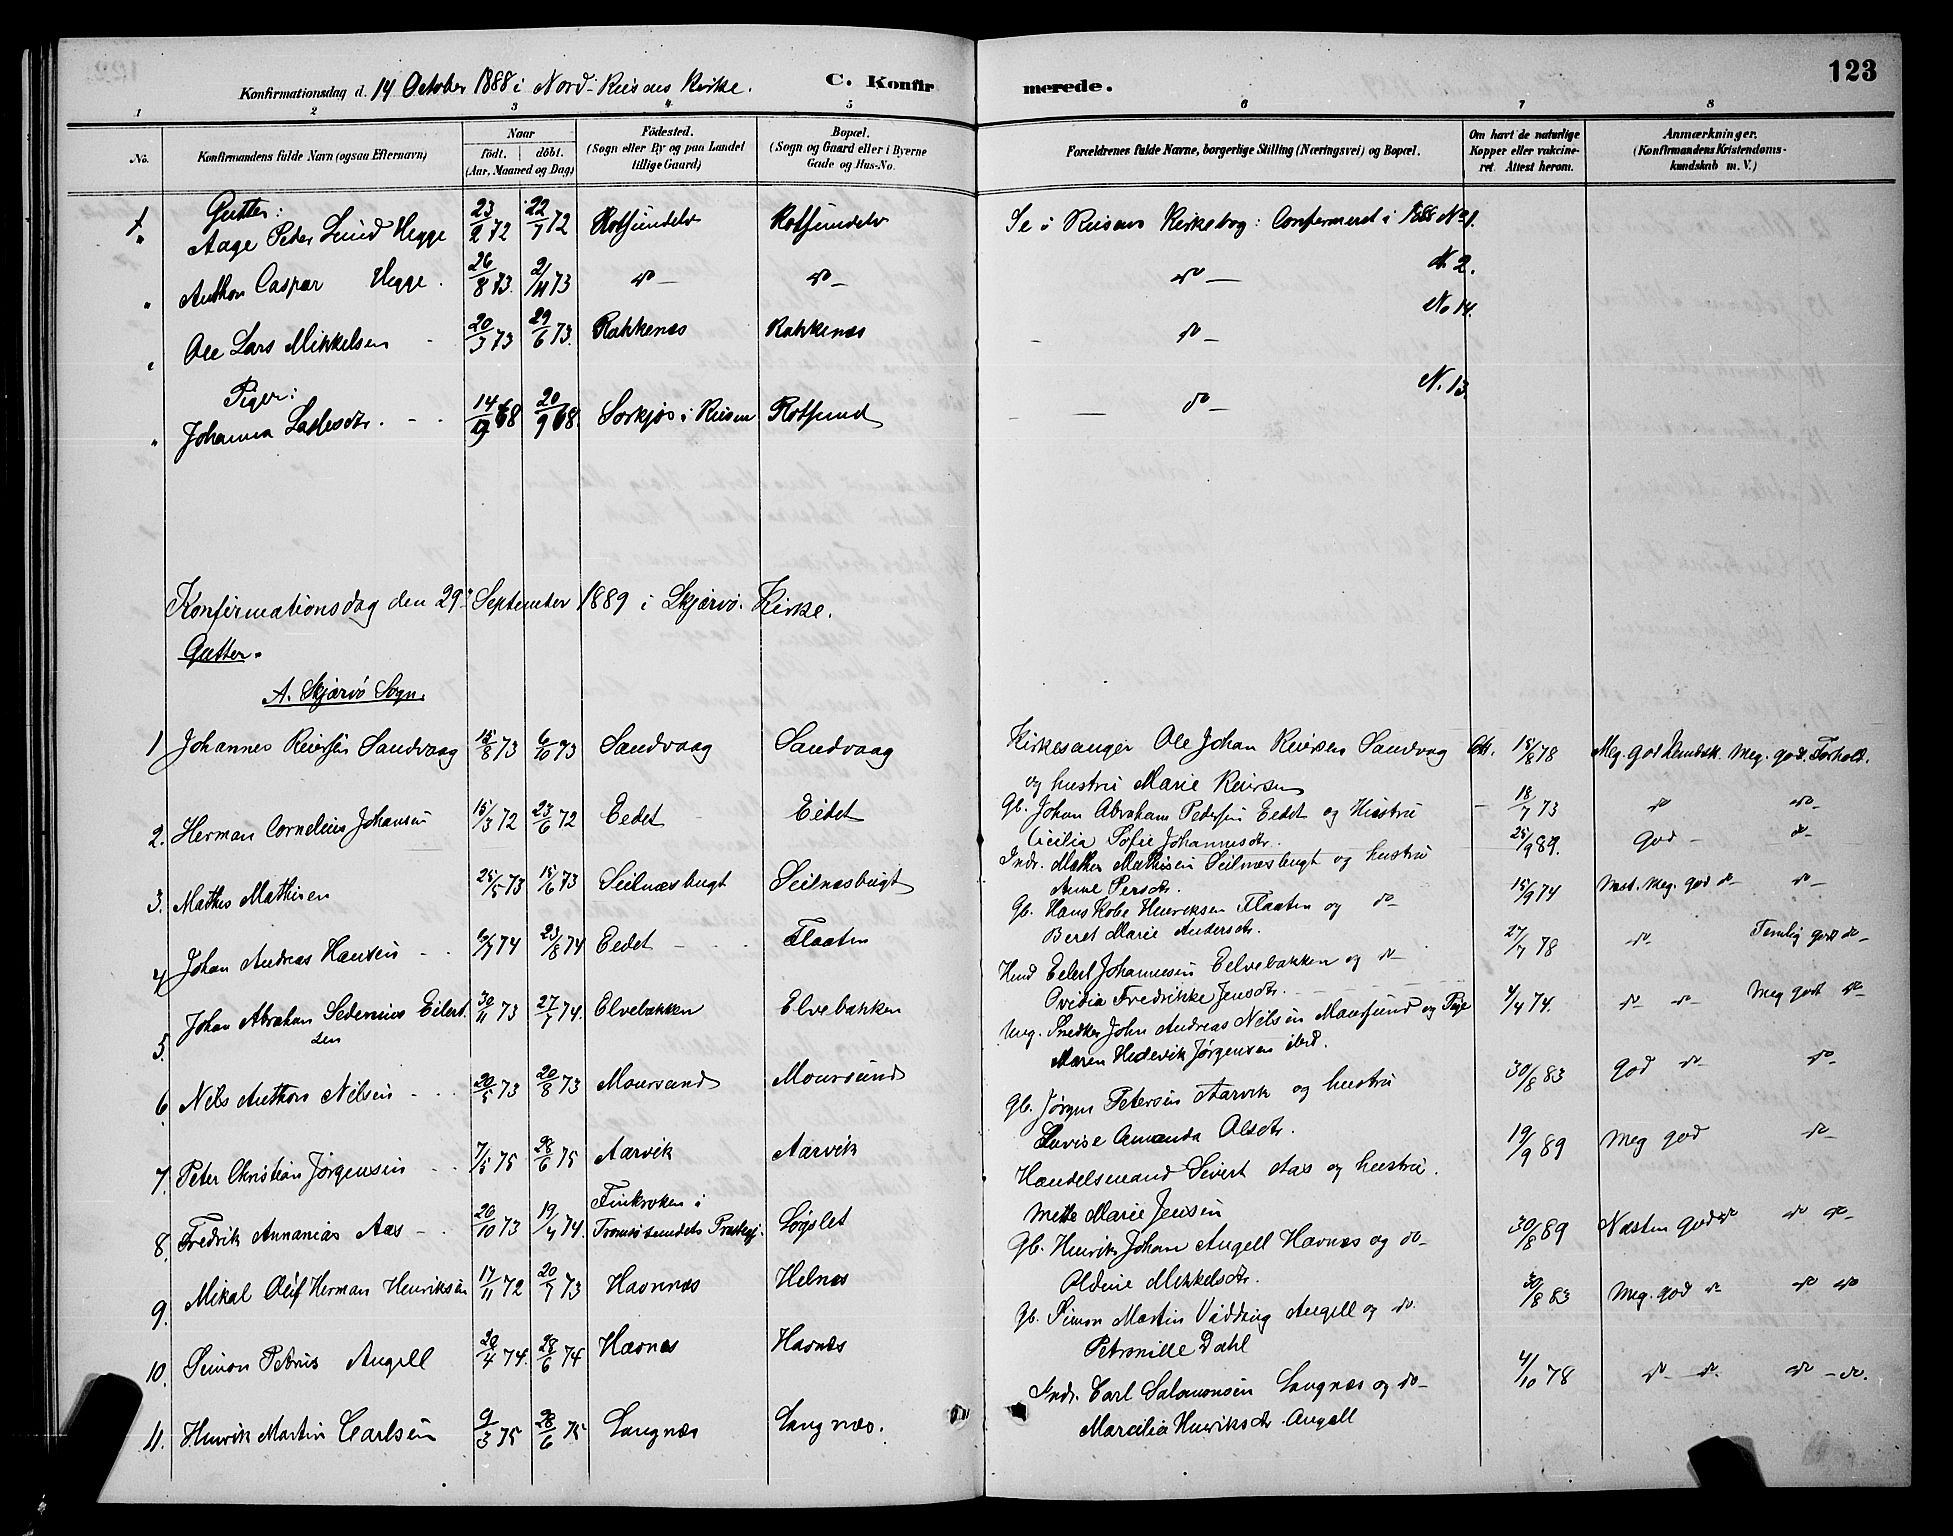 123
Konfirmationsdag d. 14 October 1888 i Nord-Reisens Kirke. C. Konfirmerede.
1 2 3 4 5 6 7 8
No. Konfirmandens fulde Navn (ogsaa Efternavn) Naar födt. döbt. (Aar, Maaned og Dag) Födested. (Sogn eller By og paa Landet tillige Gaard) Bopæl. (Sogn og Gaard eller i Byerne Gade og Hus-No. Forældrenes fulde Navne, borgerlige Stilling (Næringsvei) og Bopæl. Om havt de naturlige Kopper eller vakcineret. Attest herom. Anmærkninger. (Konfirmandens Kristendomskundskab m. V.)
Gutter:
Aage Peter Lund Hegge 23/2 72 22/7 72 Rotsundelv Rotsundelv Se i Reisens Kirkebog: Confermeret i 1888 No 1.
Anthon Caspar Hegge. 26/8 73. 2/11 73 do - do - do - N. 2.
Ole Lars Mikkelsen 20/3 73 29/6 73. Rakkenæs Rakkenæs do - No 14.
Piger:
Johanna Lassesdtr. 14/9 68 20/9 68. Sorkjos i Reisen Rotsund do - N. 13.
Konfirmationsdag den 29de September 1889 i Skjærvö Kirke.
Gutter.
A. Skjærvö Sogn.
1 Johannes Reiersen Sandvaag 15/8 73 6/10 73 Sandvaag Sandvaag Kirkesanger Ole Johan Reiersen Sandvaag Att. 15/8 78 Meg. god Kundsk. Meg. godt Forhold.
og hustru Marie Reiersen
2. Herman Cornelius Johansen 15/3 72 23/6 72 Eedet Eidet Gb. Johan Abraham Pedersen Eedet og Hustru 18/7 73 do do -
Cicilia Sofie Johannesdtr.
3. Mathis Mathisen 25/5 73 15/6 73 Seilnæsbugt Seilnæsbugt Indr. Mathis Mathisen Seilnæsbugt og hustru 25/9 89. God - do -
Anne Persdtr.
4 Johan Andreas Hansen 6/7 74 23/8 74 Eedet Flaaten Gb. Hans Kobe Henriksen Flaaten og do - 15/9 74 Med. Meg. god do - do -
Beret Marie Andersdtr.
5. Johan Abraham Sedenius Eilertsen 30/11 73 27/7 74. Elvebakken Elvebakken Hmd Eilert Johannesen Eelvebakken og do - 27/7 78 do - Temlig godt do -
Ovidia Fredrikke Jensdtr.
6. Nels Anthon Nilsen 20/5 73 20/8 73 Moursund Moursund Ung. Snedker John Andreas Nilsen Maursund og Pige 4/4 74. do - do - Meg godt do -
Maren Hedevik Jørgensen ibid.
7. Peter Christian Jørgensen 7/5 75 28/6 75 Aarvik Aarvik Gb. Jørgen Petersen Aarvik og hustru 30/8 83 God do - do -
Lovise Amanda Olsdtr.
8. Fredrik Annanias Aas 20/10 73 19/4 74. Finkroken i Tromsösundets Prestegj. Løgslet Handelsmand Sivert Aas og hustru. 19/9 89 Meg god do -
Mette Marie Jensen
9. Mikal Olüf Herman Henriksen 17/11 72 20/7 73 Havnnæs Helnæs Gb. Henrik Johan Angell Havnæs og do - 30/8 89 Næsten god do do do -
Oldine Mikkelsdtr.
10. Simon Petrus Angell 20/4 74. 28/6 74 Havnæs Havnæs Gb. Simon Martin Vadding Angell og do. 30/8 83 Meg. god do do do
Petronille Dahl
11. Henrik Martin Carlsen 9/3 75 28/6 75 Langnæs Langnæs. Indr. Carl Salomonsen Langnæs og do - 4/10 78 do - do. do - do.
Marcilia Henriksdtr Angell